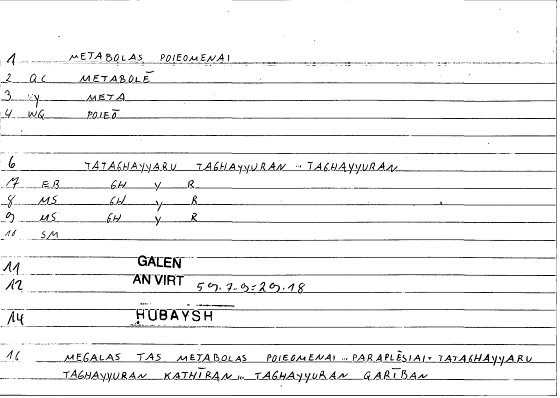 1 METABOLAS POIEOMENAI
2 QC METABOLĒ
3 XY META
4 WQ POIEŌ
6 TATAGHAYYARU TAGHAYYURAN ... TAGHAYYURAN
7 EB GH Y R
8 MS GH Y R
9 MS GH Y R
10 SM
11 GALEN
12 AN VIRT 59.7-9=29.18
14 HUBAYSH
16 MEGALAS TAS METABOLAS POIEOMENAI ... PARAPLĒSIAI+ TATAGHAYYARU
TAGHAYYURAN KATHĪRAN ... TAGHAYYURAN GARĪBAN